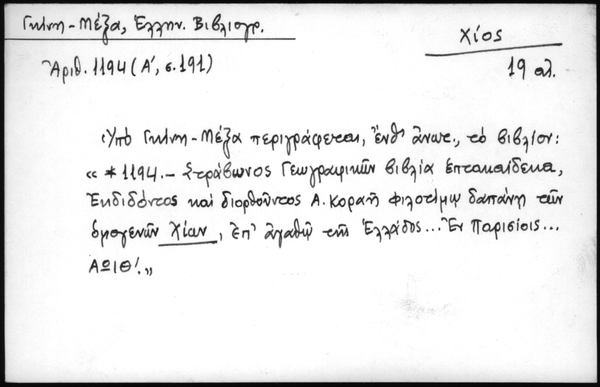 Γκίνη-Μέξα, Ἑλλην. Βιβλιογρ.
Χίος
Ἀριθ. 1194 (Α΄, σ. 191)
19 αἰ.
Ὑπὸ Γκίνη-Μέξα περιγράφεται, ἔνθ' ἄνωτ., τὸ βιβλίον:
« * 1194. – Στράβωνος Γεωγραφικῶν βιβλία ἑπτακαίδεκα,
Ἐκδιδόντος καὶ διορθοῦντος Α. Κοραῆ φιλοτίμῳ δαπάνῃ τῶν
ὁμογενῶν Χίων, ἐπ' ἀγαθῷ τῆς Ἑλλάδος... Ἐν Παρισίοις...
ΑΩΙΘ΄.»